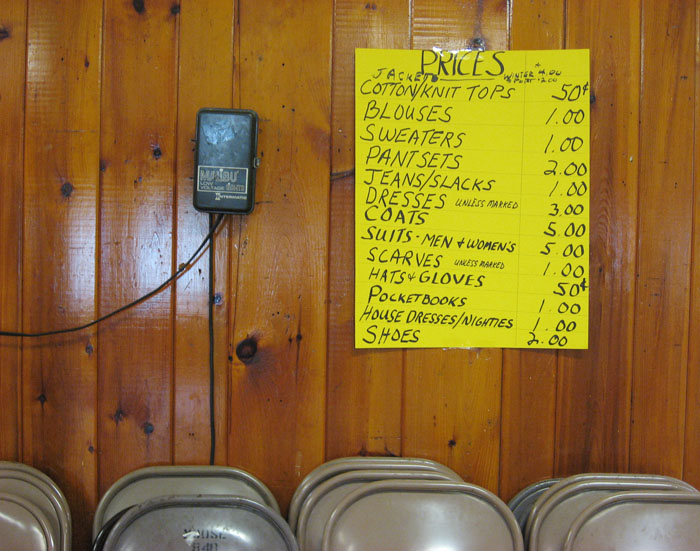 PRICES
JACKETS WINTER 4.00
2.00
COTTON/KNIT TOPS 50¢
BLOUSES 1.00
SWEATERS 1.00
PANTSETS 2.00
JEANS/SLACKS 1.00
DRESSES UNLESS MARKED 3.00
COATS 5.00
SUITS - MEN & WOMEN'S 5.00
SCARVES UNLESS MARKED 1.00
HATS & GLOVES 50¢
POCKETBOOKS 1.00
HOUSE DRESSES/NIGHTIES 1.00
SHOES 2.00
MALIBU
LOW
VOLTAGE LIGHTS
INTERMATIC